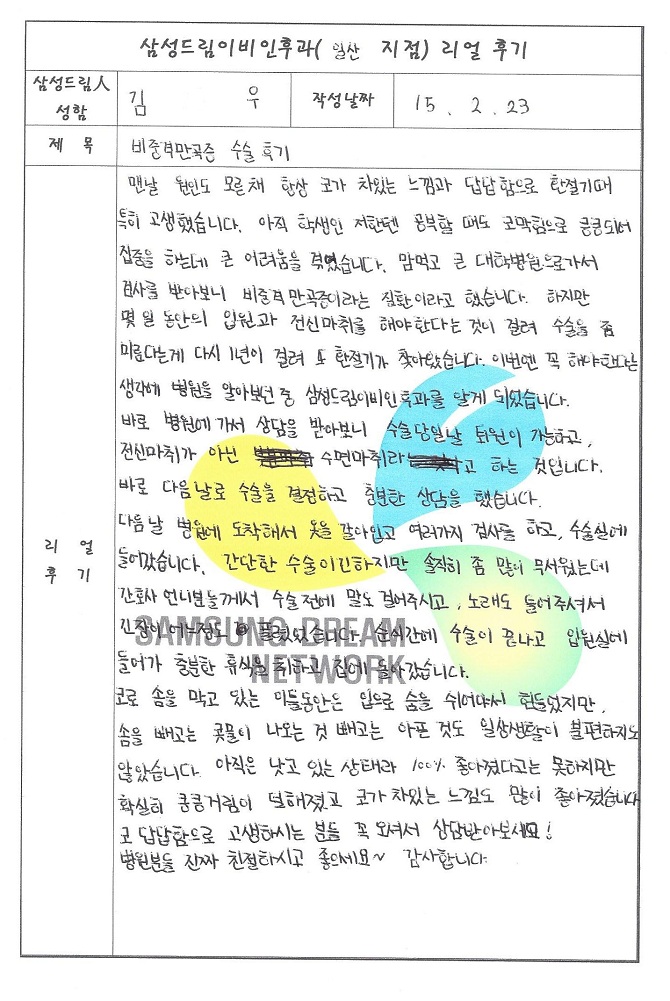 삼성드림이비인후과( 일산 지점) 리얼 후기
삼성드림人 성함
김 우
작성날짜
15. 2. 23
제 목
비중격만곡증 수술 후기
맨날 원인도 모른채 항상 코가 차있는 느낌과 답답함으로 환절기때
특히 고생했습니다. 아직 학생인 저한텐 공부할 때도 코막힘으로 킁킁되어
집중을 하는데 큰 어려움을 겪었습니다. 맘먹고 큰 대학병원으로가서
검사를 받아보니 비중격만곡증이라는 질환이라고 했습니다. 하지만
몇 일 동안의 입원과 전신마취를 해야한다는 것이 걸려 수술을 좀
미룬다는게 다시 1년이 걸려 또 환절기가 찾아왔습니다. 이번엔 꼭 해야한다는
생각에 병원을 알아보던 중 삼성드림이비인후과를 알게 되었습니다.
바로 병원에 가서 상담을 받아보니 수술당일날 퇴원이 가능하고,
전신마취가 아닌 수면마취라고 하는 것입니다.
바로 다음날로 수술을 결정하고 충분한 상담을 했습니다.
다음날 병원에 도착해서 옷을 갈아입고 여러가지 검사를 하고, 수술실에
리 얼
후 기
들어갔습니다. 간단한 수술이긴하지만 솔직히 좀 많이 무서웠는데
간호사 언니분들께서 수술전에 말도 걸어주시고, 노래도 틀어주셔서
긴장이 어느정도 풀렸었습니다. 순식간에 수술이 끝나고 입원실에
들어가 충분한 휴식을 취하고 집에 돌아갔습니다.
SAMSUNG DREAM
NETWORK
코로 솜을 막고 있는 이틀동안은 입으로 숨을 쉬어야서 힘들었지만,
솜을 빼고는 콧물이 나오는 것 빼고는 아픈 것도 일상생활이 불편하지도
않았습니다. 아직은 낫고 있는 상태라 100% 좋아졌다고는 못하지만
확실히 킁킁거림이 덜해졌고 코가 차있는 느낌도 많이 좋아졌습니다
코 답답함으로 고생하시는 분들 꼭 오셔서 상담받아보세요!
병원분들 진짜 친절하시고 좋으세요~ 감사합니다.